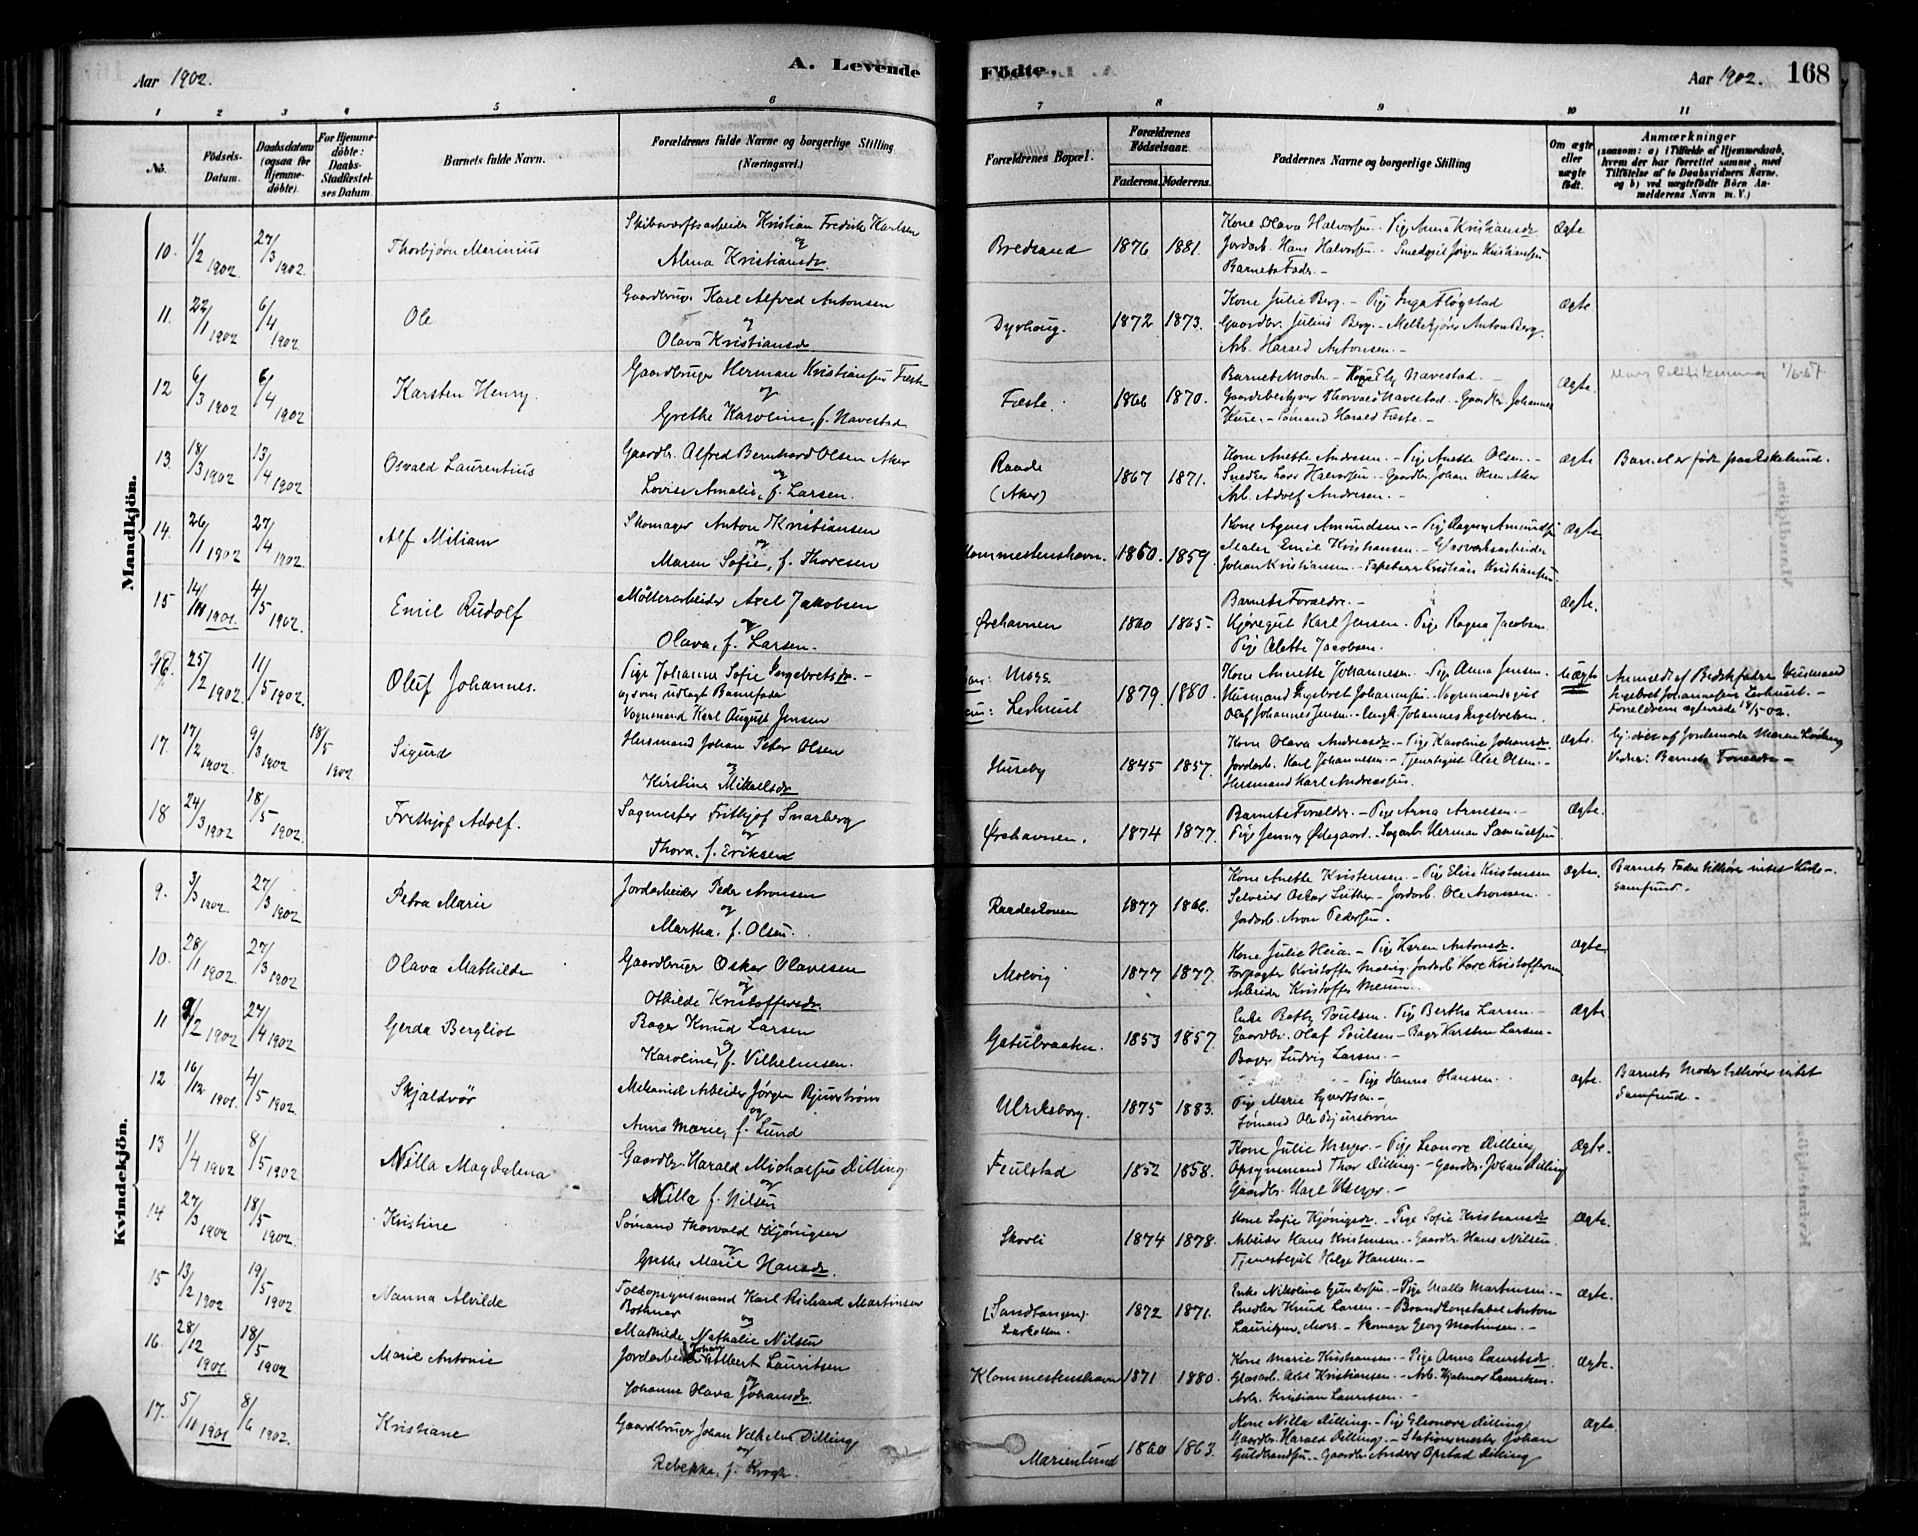 Aar 1902.
A. Levende
Födte.
Aar 1902.
168
1 2 3 4 5 6 7 8 9 10 11
No.
Födsels-Datum.
Daabsdatum (ogsaa for Hjemmedöbte).
For Hjemmedöbte: Daabs-Stadfæstelses Datum.
Barnets fulde Navn.
Forældrenes fulde Navne og borgerlige Stilling (Næringsvei.)
Forældrenes Bopæl.
Forældrenes Födselsaar.
Faderens. Moderens.
Faddernes Navne og borgerlige Stilling
Om ægte eller uægte födt.
Anmærkninger
(saasom: a) i Tilfælde af Hjemmedaab, hvem der har forrettet samme, med Tilföielse af to Daabsvidners Navne. og b) ved uægtefödte Börn Anmelderens Navn m. V.)
Mandkjön.
10. 1/2 1902. 27/3 1902. Thorbjørn Marinius
Skibsværftsarbeider Kristian Fredrik Karlsen
og
Alma Kristiansdr
Bredsand 1876 1881.
Kone Olava Halvorsen - Pige Anna Kristiansdr
Jordarb. Hans Halvorsen - Smedgut Jørgen Kristiansen
Barnets Fader. -
Ægte
11. 22/1 1902 6/4 1902. Ole
Gaardbrug. Karl Alfred Antonsen
og
Olava Kristiansdr
Dyrhoug. 1872 1873.
Kone Julie Berg. - Pige Inga Fløgstad
Gaardbr. Julius Berg. - Melkekjører Anton Berg.
Arb. Harald Antonsen. -
Ægte
12 6/3 1902 6/4 1902. Karsten Henry.
Gaardbruger Herman Kristiansen Fæste
og
Grethe Karoline, f. Navestad
Fæste. 1866 1870.
Barnets Moder - Navestad. -
Gaardsbestyrer Thorvald Navestad - Gaardbr. Johannes
Kure. - Sømand Harald Fæste. -
Ægte.
13. 18/3 1902 13/4 1902 Osvald Laurentius
Gaardbr. Alfred Bernhard Olsen Aker
og
Lovise Amalie, f. Larsen.
Raade (Aker) 1867 1871.
Kone Anette Andresen. - Pige Anette Olsen. -
Snedker Lars Halvorsen - Gaardbr. Johan Olsen Aker
Arb. Adolf Andresen. -
Ægte
Barnet er født paa Eskelund.
14. 26/1 1902 27/4 1902. Alf Miliam
Skomager Anton Kristiansen
og
Maren Sofie, f. Thoresen
Klommestenshavn. 1860. 1859.
Kone Agnes Amundsen. - Pige Ragna Amundsen
Maler Emil Kristiansen. - Glasverksarbeider
Johan Kristiansen. - Tapetserer Kristian Kristiansen
Ægte.
15 1901. 4/5 1902. Emil Rudolf
Møllerarbeider Axel Jakobsen
og
Olava, f. Larsen.
Ørehavnen 1860 1865.
Barnets Forældre. -
Kjøregut Karl Jensen. - Pige Ragna Jacobsen
Pige Alette Jacobsen.
Ægte.
16. 25/2 1902 11/5 1902. Oluf Johannes.
Pige Johanne Sofie Ingebretsdr. -
og som udlagt Barnefader
Vognmand Karl August Jensen
Moss
Lerhuset
1879 1880.
Kone Annette Johannesen. - Pige Anna Jensen.
Husmand Ingebret Johannesen. - Vognmandsgut
Olaf Johannes Jensen. - Ungk. Johannes Ingebretsen.
Uægte
Anmeldt af Bedstefader Husmand
Ingebret Johannesen Lerhuset. -
Forældrene ægteviede 18/5-02.
17. 17/2 1902. 9/3 1902 18/5 1902 Sigurd
Husmand Johan Peter Olsen
og
Kirstine Mikaelsdr
Huseby 1845 1857.
Kone Olava Andreasdr - Pige Karoline Johansdr
Jordarb. Karl Johannesen. - Tjenestegut Axel Olsen. -
Husmand Karl Andreassen
Ægte.
Hj. døbt af Jordemoder Maren
Vidner: Barnets Forældre -
18 24/3 1902 18/5 1902. Frithjof Adolf.
Sagmester Frithjof Snarberg
og
Thora, f. Eriksen
Ørehavnen. 1874 1877.
Barnets Forældre. - Pige Anna Arnesen. -
Pige Jenny Ødegaard. - Sagarb. Herman Samuelsen
Ægte.
Kvindekjön.
9. 3/3 1902. 27/3 1902. Petra Marie
Jordarbeider Peder Aronsen
og
Martha, f. Olsen.
Raadeskoven 1877 1866.
Kone Anette Kristensen - Pige Elise Kristensen
Selveier Oskar Luther. - Jordarb. Ole Aronsen.
Jordarb. Aron Pedersen. -
Ægte.
Barnets Fader tilhører intet Kirke-
samfund. -
10. 28/1 1902. 27/3 1902. Olava Mathilde
Gaardbruger Oskar Olavesen
og
Othilde Kristoffersdr.
Molvig 1877 1877.
Kone Julie Heia. - Pige Karen Antonsdr.
Forpagter Kristoffer Molvig. Jordarb. Kristoffersen
Arbeider Kristoffer
Ægte
11 9/2 1902 27/4 1902. Gerda Bergliot
Bager Knud Larsen
og
Karoline, f. Vilhelmsen.
1853 1857.
Enke Betsy Poulsen. Pige Bertha Larsen -
Gaardbr. Olaf Poulsen - Bager Karsten Larsen -
Bager Ludvig Larsen. -
Ægte
12 16/12 1901. 4/5 1902. Skjaldvør
Mekanisk Arbeider Jørgen Bjurstrøm
og
Anna Marie, f. Lund
Ulriksborg. 1875 1883.
- Pige Hanna Hansen.
Pige Marie Syvertsen. -
Sømand Ole Bjurstrøm
Ægte.
Barnets Moder tilhører intet
Samfund. -
13 1/4 1902 8/5 1902. Nilla Magdalena
Gaardbr. Harald Michaelsen Dilling
og
Nilla f. Nilsen
Fuglstad 1852 1858.
Kone Julie Meyer. - Pige Leonore Dilling
Opsynsmand Thor Dilling. - Gaardbr. Johan Dilling
Gaardbr. Karl Meyer. -
Ægte.
14 27/3 1902 18/5 1902. Kristine
Sømand Thorvald Kjønigsen
og
Grethe Marie Hansdr.
Skovli 1874 1878.
Kone Sofie Kjønigsdr. - Pige Sofie Kristiansdr
Arbeider Hans Kristensen. - Gaardbr. Hans Nilsen.
Tjenestegut Helge Hansen. -
Ægte.
15 13/2 1902. 19/5 1902. Nanna Alvilde
Toldopsynsmand Karl Richard Martinsen
Bothner og
Mathilde Nathalie Nilsen
(Sandtangen). Larkollen. 1872 1871.
Enke Nikoline Gundersen. - Pige Malla Martinsen. -
Snedker Knud Larsen. - Brandkonstabel Anton
Lauritzen, Moss. - Skomager Georg Martinsen. -
Ægte.
16. 28/12 1901. 18/5 1902 Marie Antonie
Jordarbeider Johan Albert Lauritsen
og
Johanne Olava Johansdr.
Klommestenshavn 1871 1880.
Kone Marie Kristiansen. - Pige Anna Lauritsdr
Glasarb. Axel Kristiansen. - Arb. Hjalmar Lauritsen.
Arb. Kristian Lauritsen. -
Ægte.
17. 5/11 1901 8/6 1902. Kristiane
Gaardbruger Johan Vilhelm Dilling
og
Rebekka, f. Krogh.
Marienlund 1860 1863.
Kone Nilla Dilling. - Pige Eleonora Dilling
Gaardbr. Harald Dilling. - Stationsmester Johan
Guldbrandsen. - Gaardbr. Anders Opstad Dilling
Ægte